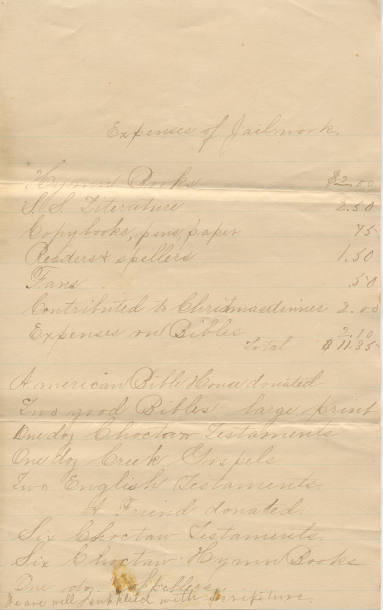 Expenses of Jailwork.
Hymn Books $2.00
S.S. Literature 2.50
Copybooks, pens, paper 75
Readers & spellers 1.50
Fans .50
Contributed to Christmas dinner 2.00
Expenses on Bibles 2.10
Total $11.35
American Bible House donated
Two good Bibles large print
One doz Choctaw Testaments
One doz Creek Gospels
Two English Testaments.
A Friend donated.
Six Choctaw Testaments.
Six Choctaw Hymn Books
One doz Spellers
We are well supplied with scripture.